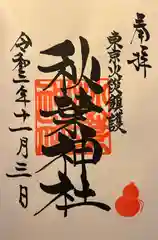 奉拝
東京火伏鎮護
秋葉神社
令和三年十一月三日